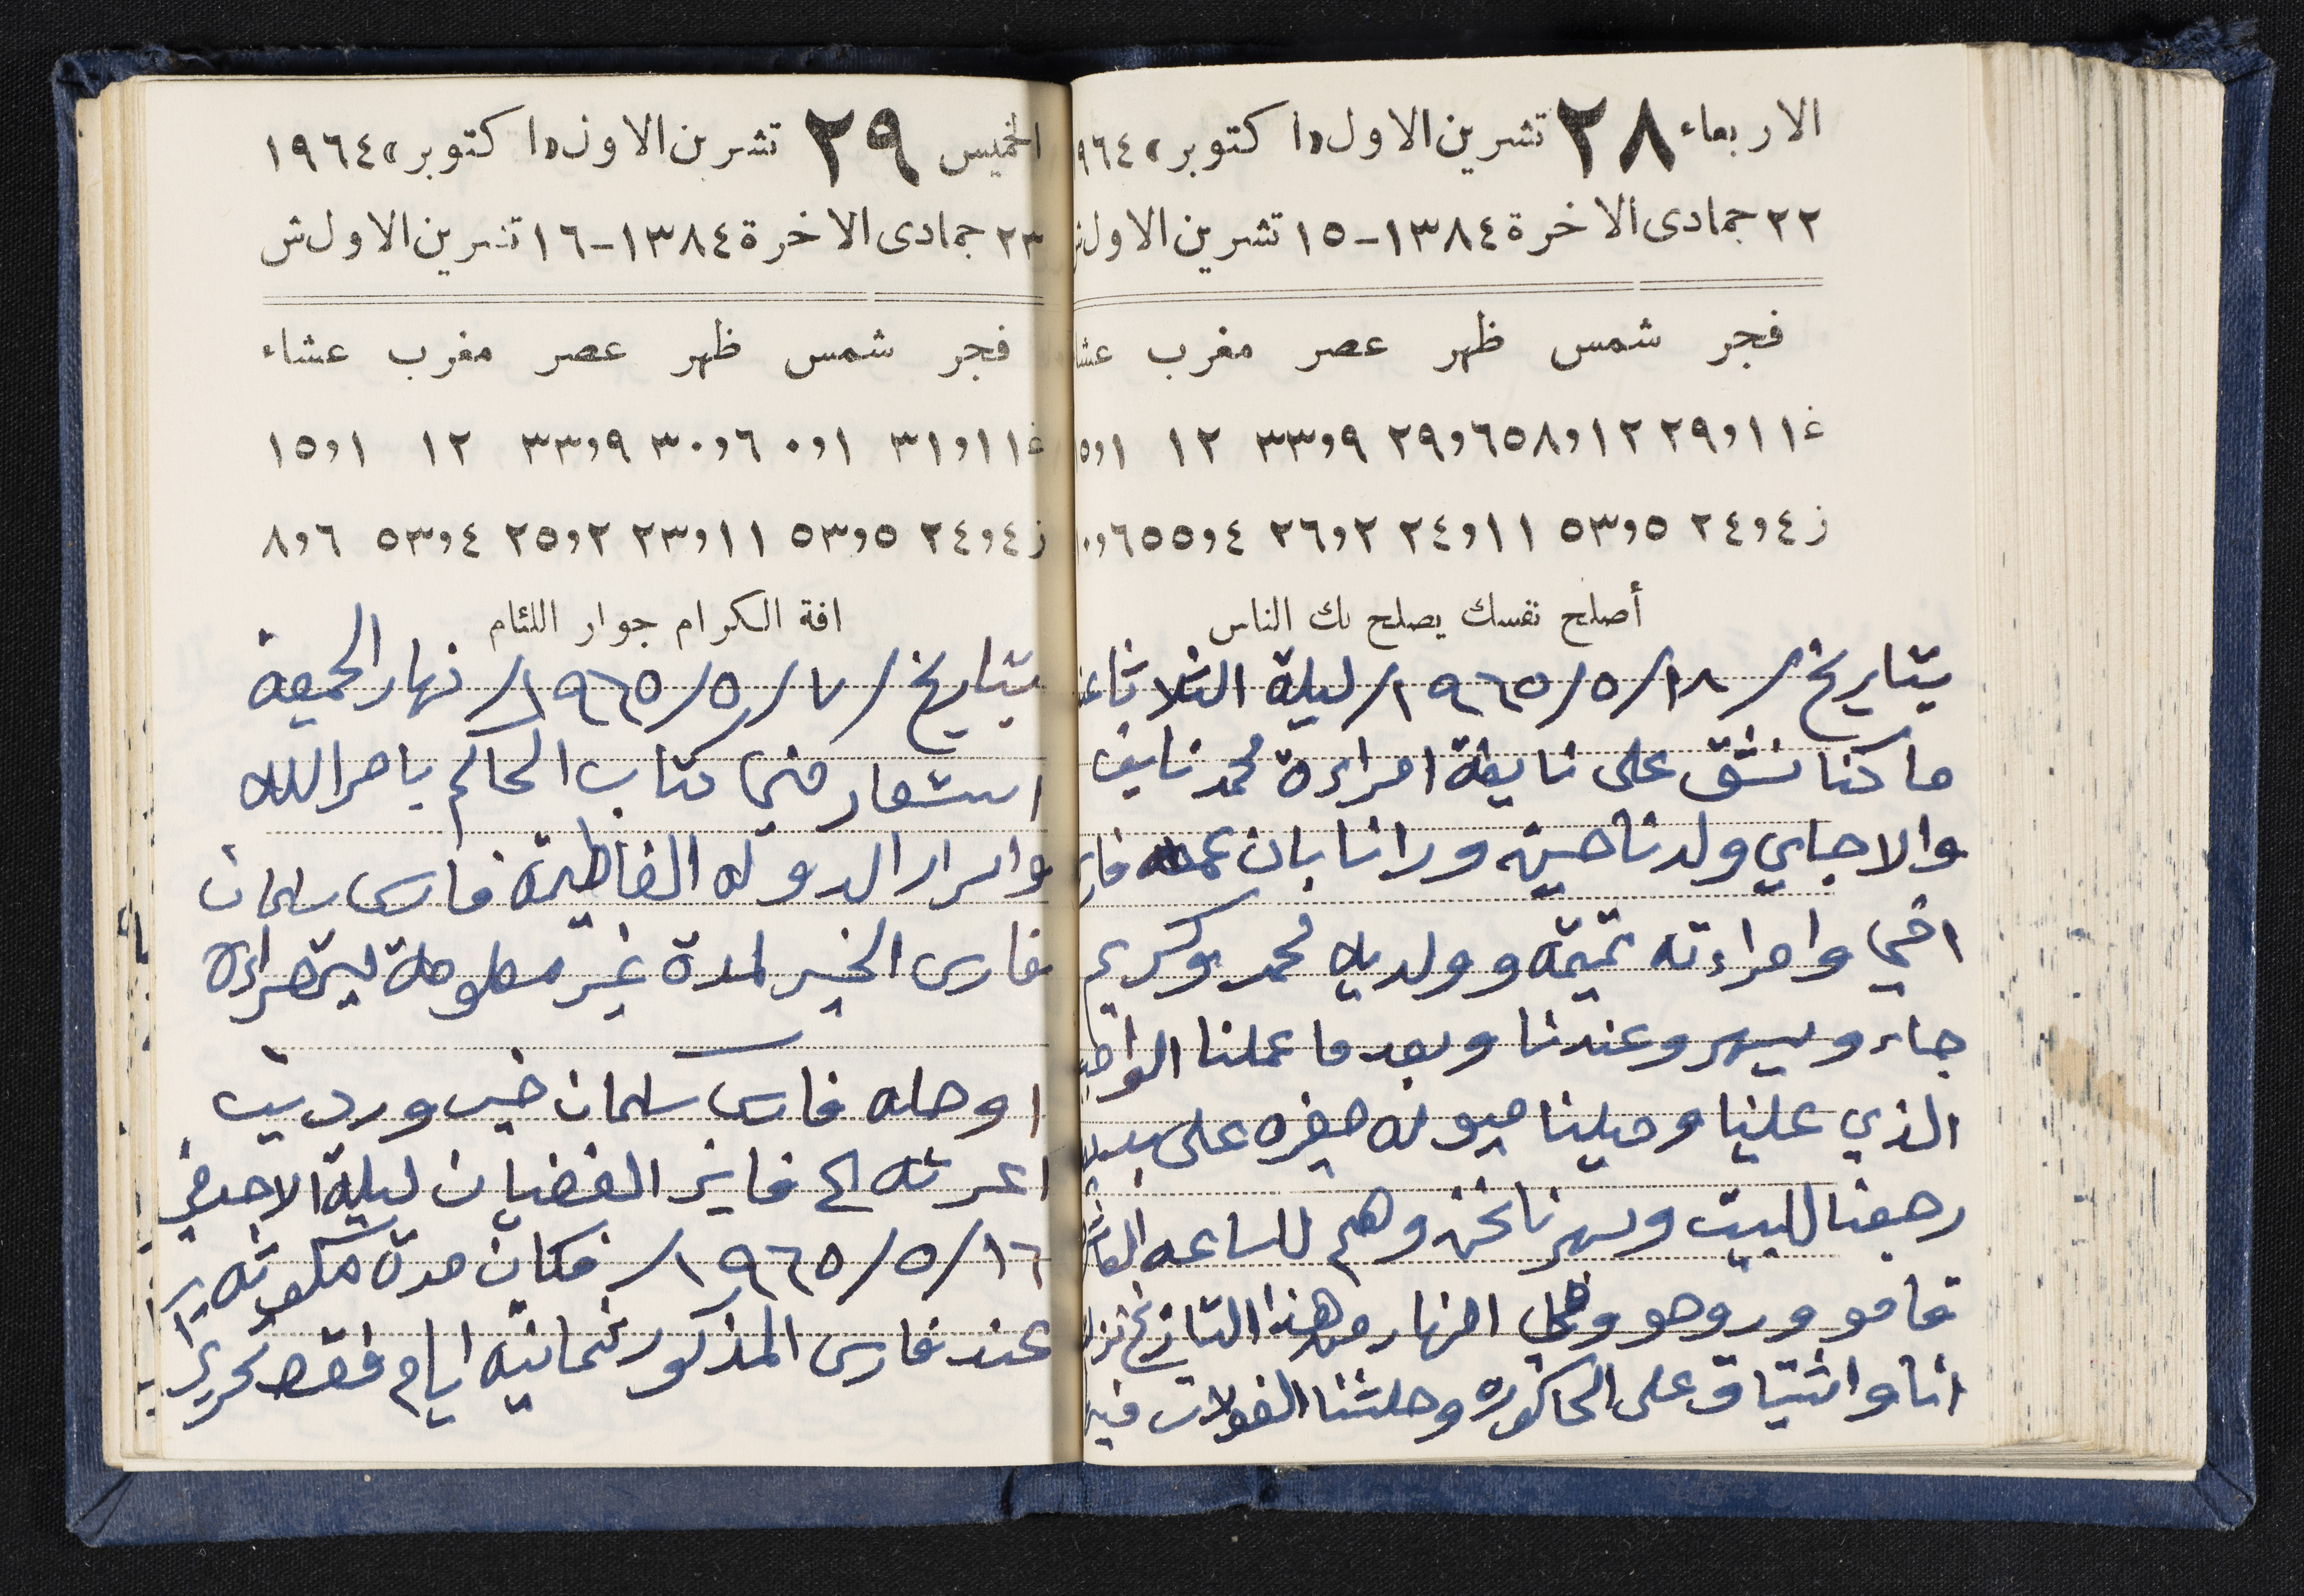 الاربعاء ٢٨ تشرين الاول «اكتوبر» ٩٦٤
٢٢ جمادى الاخرة ١٣٨٤ - ١٥ تشرين الاول
فجر شمس ظهر عصر مغرب عشا
غ ١١و٢٩ ١٢و٥٨ ٦و٢٩ ٩و٣٣ ١٢ ١و١٥
ز ٤و٢٤ ٥و٥٣ ١١و٢٤ ٢و٢٦ ٤و٥٥ ٦و١٠
أصلح نفسك يصلح لك الناس
بتاريخ /١٨/٥/١٩٦٥/ ليلة الثلاثاء
ما كنا نشق على نايفة امراءة محمد نايف
والا جاي ولدنا حسين ورانا بان عمه
اخي وامراءته تميمه وولديه محمد وكريم
جاء ويسهرو عندنا وبعدما عملنا الواجب
الذي علينا وحيلنا على
رجعنا للبيت وسهرنا نحن وهم للساعه العاشر
قامو وروحو وفي النهار من هذا التاريخ نزل
انا واشتياق على الحاكوره وحلشنا الفولات
الخميس ٢٩ تشرين الاول «اكتوبر» ١٩٦٤
٢٣ جمادى الاخرة ١٣٨٤ - ١٦ تشرين الاول ش
فجر شمس ظهر عصر مغرب عشاء
غ ١١و٣١ ١و٠ ٦و٣٠ ٩و٣٣ ١٢ ١و١٥
ز ٤و٢٤ ٥و٥٣ ١١و٢٣ ٢و٢٥ ٤و٥٣ ٦و٨
افة الكرام جوار اللئام
بتاريخ /٧/٥/١٩٦٥/ نهار الجمعة
استعار مني كتاب الحاكم بامر الله
واسرار الدوله الفاطمية فارس سلمان
فارس الخير لمدة غير معلومة ليقراءه
اوصله فارس سلمان خير ورديت
اعرته الى فايز الغضبان ليلة الاحد في
١٦/٥/١٩٦٥/ فكان مدة مكوثه
عند فارس المذكور ثمانية ايام فقط تحريرا